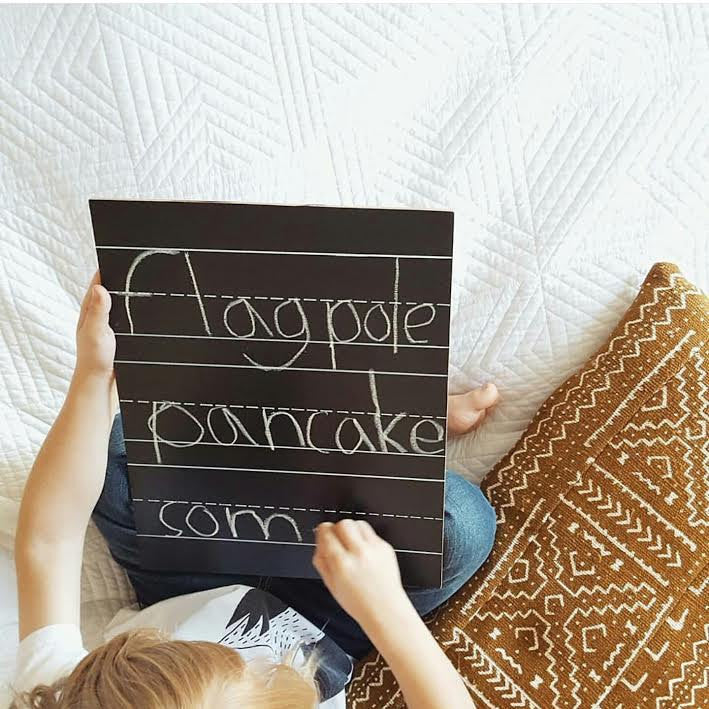 flagpole
pancake
som